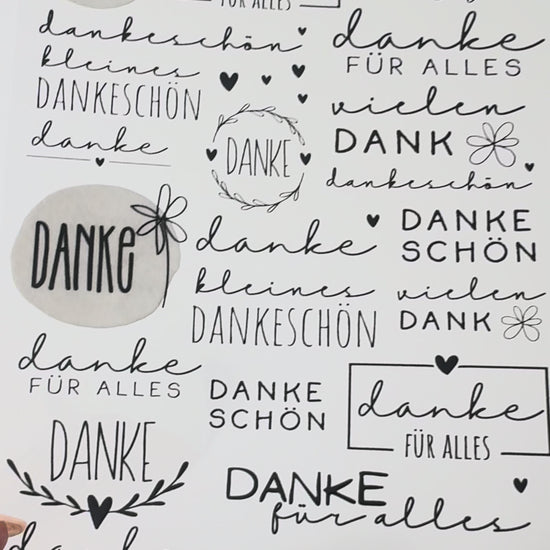 FÜR ALLES
dankeschön
kleines
DANKESCHÖN
danke
DANKE
danke
FÜR ALLES
vielen
DANK
dankeschön
DANKE
danke
DANKE
SCHÖN
kleines
DANKESCHÖN
vielen
DANK
danke
FÜR ALLES
DANKE
SCHÖN
danke
FÜR ALLES
DANKE
DANKE
für alles